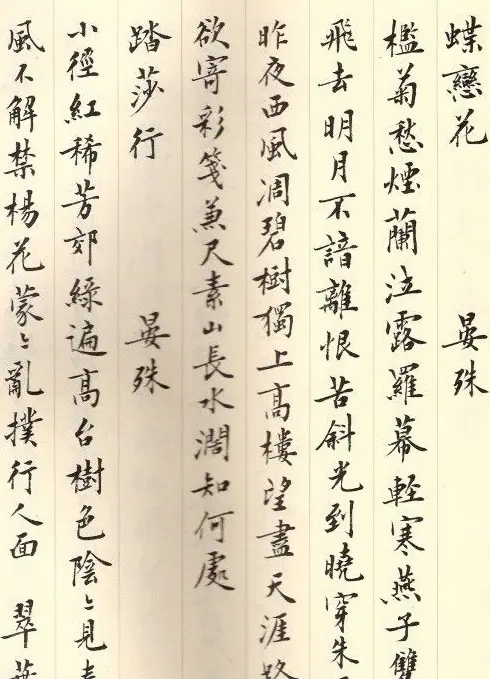 蝶戀花 晏殊
檻菊愁煙蘭泣露羅幕輕寒燕子雙
飛去明月不諳離恨苦斜光到曉穿朱
昨夜西風凋碧樹獨上高樓望盡天涯路
欲寄彩箋兼尺素山長水濶知何處
踏莎行 晏殊
小徑紅稀芳郊綠遍高台樹色陰〻見
風不解禁楊花蒙〻亂撲行人面 翠葉